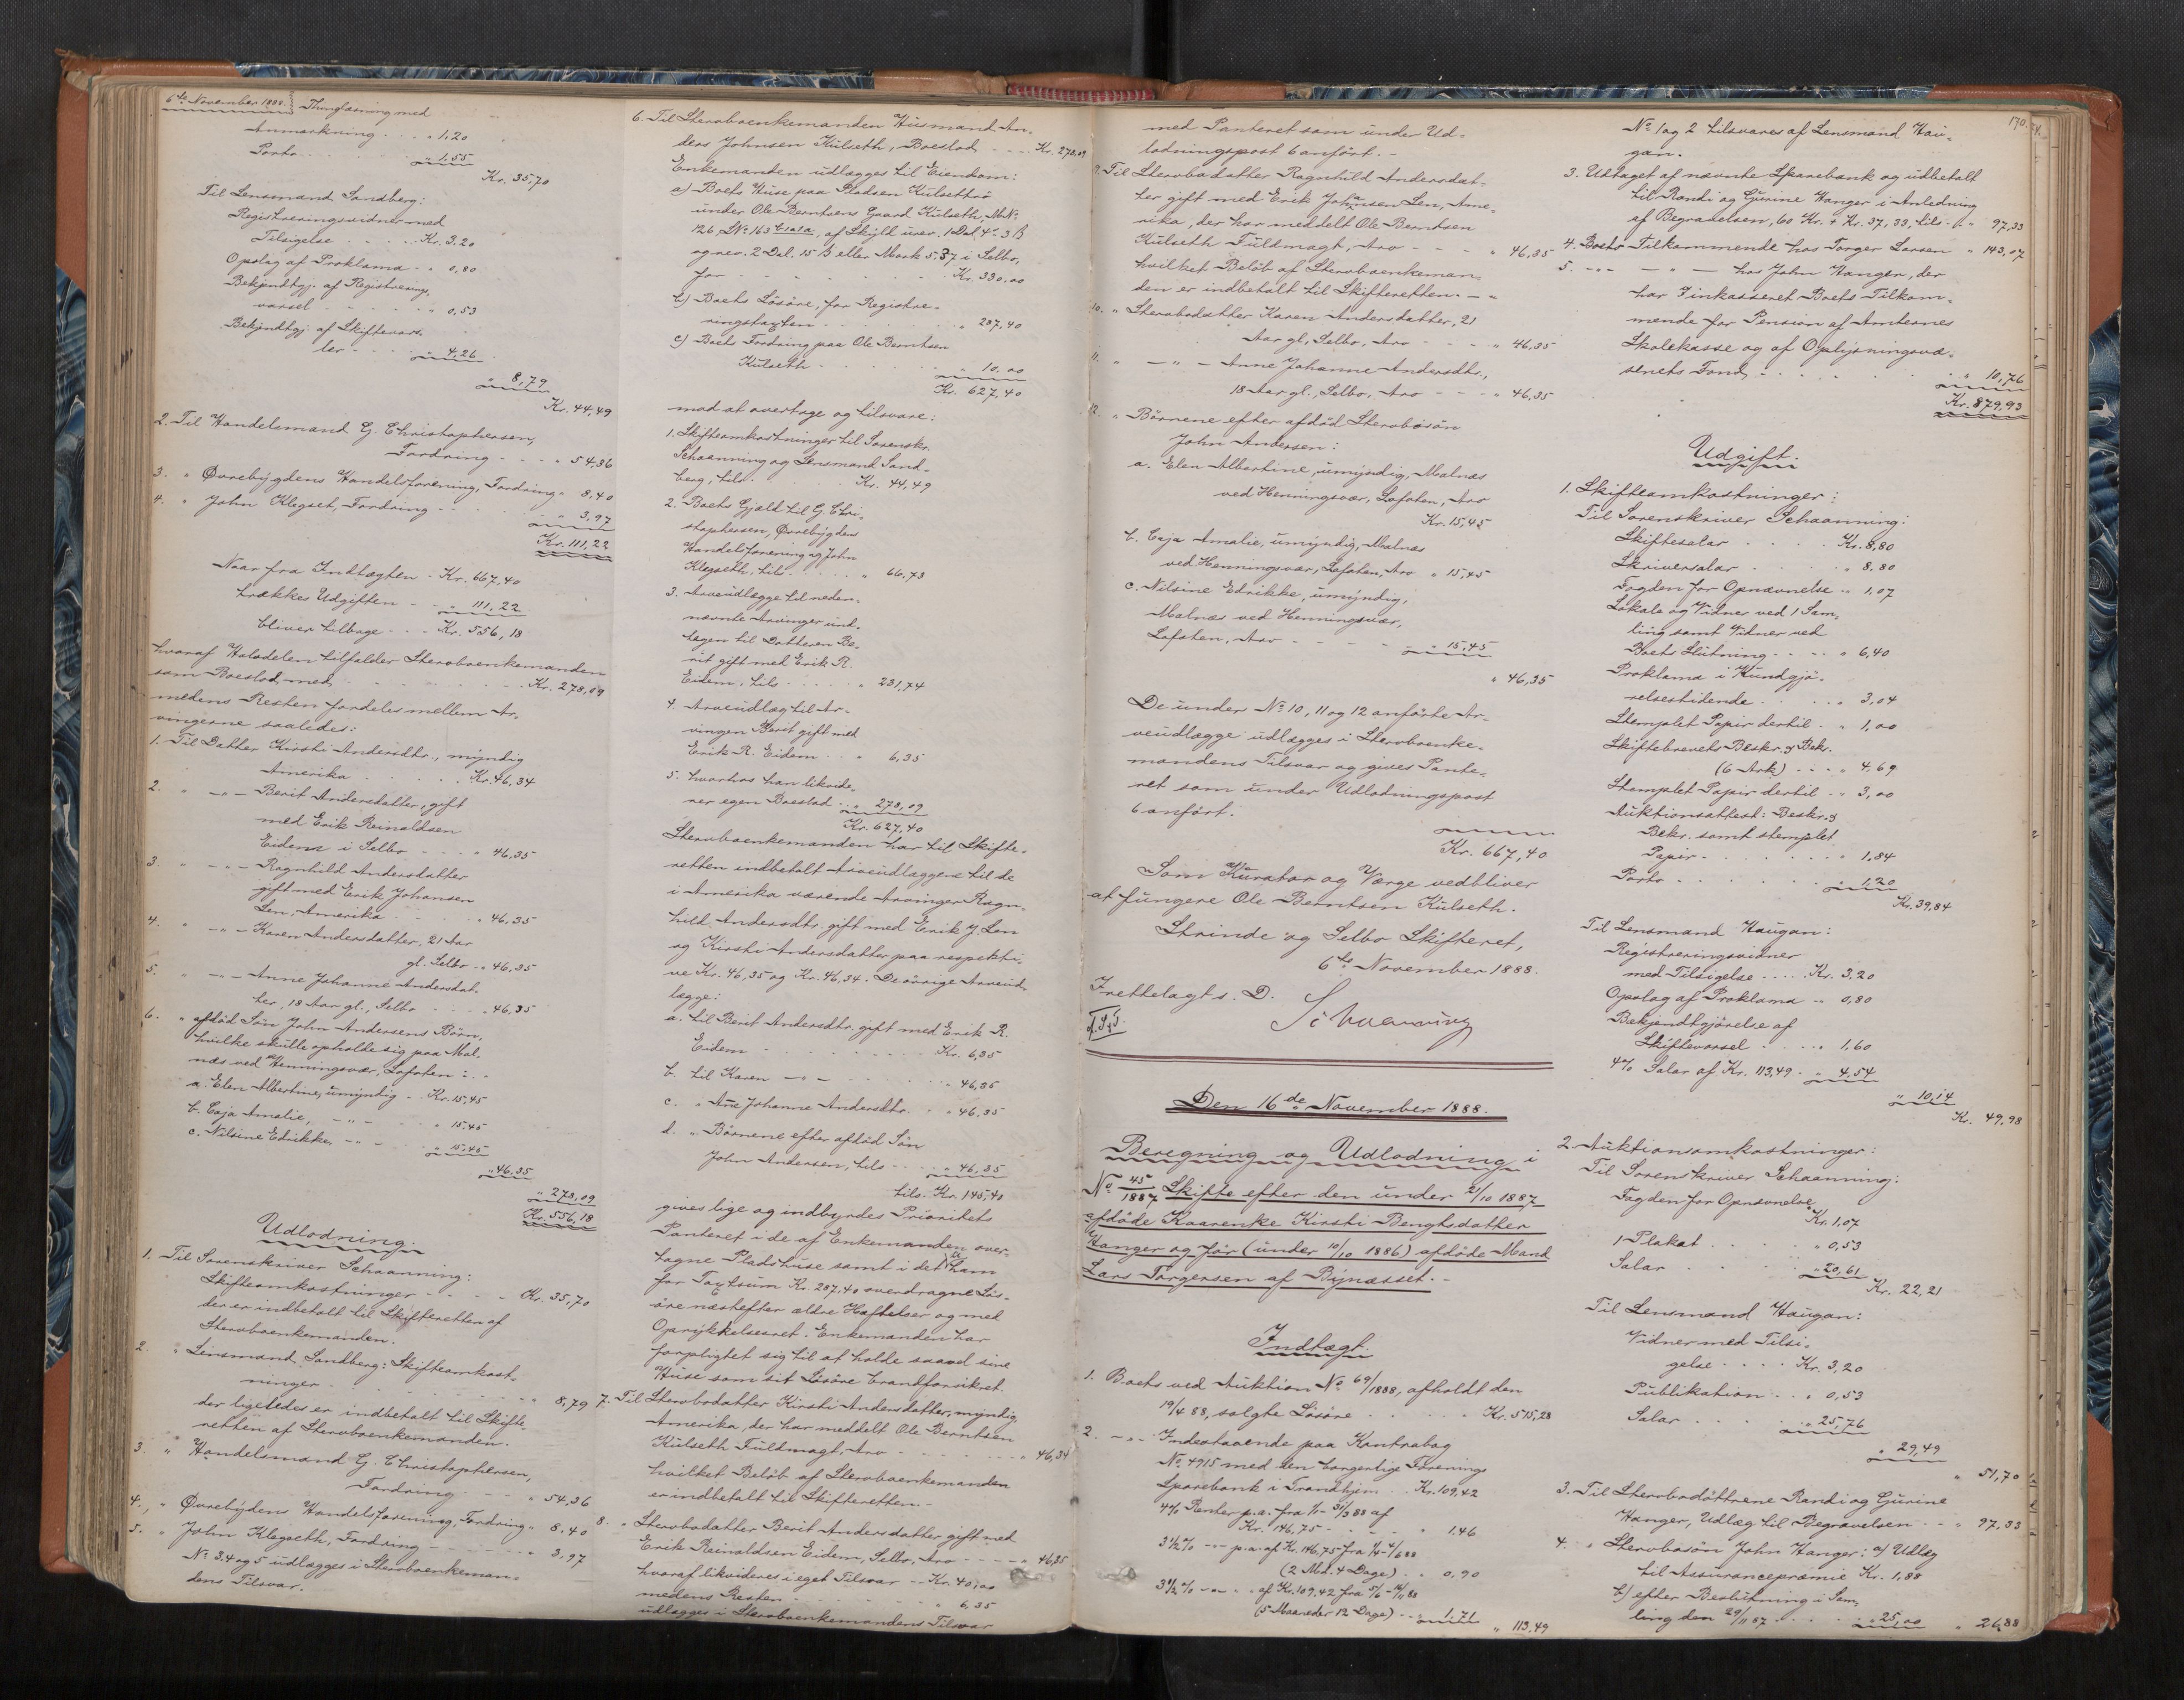 6te November 1888. Thinglæsning med
Anmærkning . . . " 1,20
Porto . . . . " 1,55
Kr. 35,70
Til Lensmand Sandberg:
Registreringsvidner med
Tilsigelse . . . . Kr. 3,20
Opslag af Proklama . . " 0,80
Bekjendtgj. af Registrerings-
varsel . . . . " 0,53
Bekjendtgj. af Skiftevars-
ler . . . " 4,26
" 8,79
Kr. 44,49
2. Til Handelsmand G. Christophersen,
Fordring . . . . " 54,36
3. " Øvrebygdens Handelsforening, Fordring " 8,40
4. " John Klegset, Fordring . . . " 3,97
Kr. 111,22
Naar fra Indtægten . Kr. 667,40
trækkes Udgiften . . " 111,22
bliver tilbage . . . Kr. 556,18
hvoraf Halvdelen tilfalder Stervboenkemanden
som Boeslod med . . . . Kr. 278,09
medens Resten fordeles mellem Ar-
vingerne saaledes:
1. Til Datter Kirsti Andersdtr., myndig
Amerika . . . . Kr. 46,34
2. " -"- Berit Andersdatter, gift
med Erik Reinaldsen
Eidem i Selbo . . . . " 46,35
3. " -"- Ragnhild Andersdatter
gift med Erik Johansen
Len, Amerika . . . . " 46,35
4. " -"- Karen Andersdatter, 21 Aar
gl. Selbo . . " 46,35
5. " -"- Anne Johanne Andersdat-
ter, 18 Aar gl., Selbo . . . . " 46,35
6. " afdød Søn John Andersens Børn,
hvilke skulle opholde sig paa Mal-
næs ved Henningsvær, Lofoten : . .
a. Elen Albertine, umyndig . Kr. 15,45
b. Caja Amalie, -"- . . " 15,45
c. Nilsine Edrikke, -"- . . " 15,45
" 46,35
" 278,09
Kr. 556,18
Udlodning.
1. Til Sorenskriver Schaanning:
Skifteomkostninger . . . . Kr. 35,70
der er indbetalt til Skifteretten af
Stervboenkemanden.
2. " Lensmand Sandberg: Skifteomkost-
ninger . . . . . " 8,79
der ligeledes er indbetalt til Skifte-
retten af Stervboenkemanden.
3. " Handelsmand G. Christophersen,
Fordring . . . . " 54,36
4. " Øvrebygdens Handelsforening, Fordring " 8.40
5. " John Klegseth, Fordring . . . . " 3,97
No. 3.4 og 5 udlægges i Stervboenkeman-
dens Tilsvar.
6. Til Stervboenkemanden Husmand An-
ders Johnsen Kulseth, Boeslod . . . Kr. 278,09
Enkemanden udlægges til Eiendom:
a) Boets Huse paa Pladsen Kulsettrø
under Ole Berntsens Gaard Kulseth, M.No.
126, L.No. 163 b1a1a, af Skyld uver. 1 Dal. 4 ort 3 ß
og rev. 2 Dal. 15 ß eller Mark 5.37 i Selbo,
for . . . . . . Kr. 330,00
b) Boets Løsøre, for Registre-
ringstaxten . . . . " 287,40
c) Boets Fordring paa Ole Berntsen
Kulseth . . . . " 10,00
Kr. 627,40
mod at overtage og tilsvare:
1. Skifteomkostninger til Sorenskr.
Schaanning og Lensmand Sand-
berg, tils. . . . Kr. 44,49
2. Boets Gjæld til G. Chri-
stophersen, Øvrebygdens
Handelsforening og John
Klegseth, tils . . . . " 66,73
3. Arveudlægge til neden-
nævnte Arvinger und-
tagen til Datteren Be-
rit gift med Erik R.
Eidem, tils . . . . " 231,74
4. Arveudlæg til Ar-
vingen Berit gift med
Erik R. Eidem . . " 6,35
5. hvorhos han likvide-
rer egen Boeslod . . " 278,09
Kr. 627,40
Stervboenkemanden har til Skifte-
retten indbetalt Arveudlæggene til de
i Amerika værende Arvinger Ragn-
hild Andersdtr. gift med Erik J. Len
og Kirsti Andersdatter paa respekti-
ve Kr. 46,35 og Kr. 46,34. De øvrige Arveud-
lægge:
a. til Berit Andersdtr. gift med Erik R.
Eidem . . . . . . Kr. 6,35
b. til Karen -"- . . . . " 46,35
c. " Anne Johanne Andersdtr. . . " 46,35
d. " Børnene efter afdød Søn
John Andersen, tils . . . " 46,35
tils. Kr. 145,40
gives lige og indbyrdes Prioritets
Panteret i de af Enkemanden over-
tagne Pladshuse samt i det ham
for Taxtsum Kr. 287,40 overdragne Løs-
øre næstefter ældre Hæftelser og med
Oprykkelsesret. Enkemanden har
forpligtet sig til at holde saavel sine
Huse som sit Løsøre brandforsikret.
7. Til Stervbodatter Kirsti Andersdatter, myndig
Amerika, der har meddelt Ole Berntsen
Kulseth Fuldmagt, Arv . . . . " 46,34
hvilket Beløb af Stervboenkemanden
er indbetalt til Skifteretten. -
8. " Stervbodatter Berit Andersdatter gift med
Erik Reinaldsen Eidem, Selbo, Arv . . . " 46,35
hvoraf likvideres i eget Tilsvar . . Kr. 40,00
medens Resten . . . . " 6,35
udlægges i Stervboenkemandens Tilsvar
170.
med Panteret som under Ud-
lodningspost 6 anført. -
9. Til Stervbodatter Ragnhild Andersdat-
ter gift med Erik Johnsen Len, Ame-
rika, der har meddelt Ole Berntsen
Kulseth Fuldmagt, Arv - - - " 46,35
hvilket Beløb af Stervboenkeman-
den er indbetalt til Skifteretten. -
10. " Stervbodatter Karen Andersdatter, 21
Aar gl, Selbo, Arv - - - " 46,35
11. " -"- Anne Johanne Andersdtr.,
18 Aar gl., Selbo, Arv - - - " 46,35
12. " Børnene efter afdød Stervbosøn
John Andersen:
a. Elen Albertine, umyndig, Malnæs
ved Henningsvær, Lofoten, Arv
Kr. 15,45
b. Caja Amalie, umyndig, Malnæs
ved Henningsvær, Lofoten, Arv " 15,45
c. Nilsine Edrikke, umyndig,
Malnæs ved Henningsvær,
Lofoten, Arv - - - - " 15,45
" 46,35
De under No. 10, 11 og 12 anførte Ar-
veudlægge udlægges i Stervboenke-
mandens Tilsvar og gives Pante-
ret som under Udlodningspost
6 anført.
Kr. 667,40
Som Kurator og Værge vedbliver
at fungere Ole Berntsen Kulseth.
Strinde og Selbo Skifteret,
6te November 1888.
Irettelagt s. D. Schaanning
Den 16de November 1888.
Beregning og Udlodning i
No 45/1887 Skifte efter den under 21/10 1887
afdøde Kaarenke Kirsti Bengtsdatter
Hanger og før (under 10/10 1886) afdøde Mand
Lars Torgersen af Bynæsset. -
Indtægt.
1. Boets ved Auktion No 69/1888, afholdt den
19/4 88, solgte Løsøre . . . . Kr. 515,28
2. -"- Indestaaende paa Kontrabog
No. 4915 med den borgerlige Forenings
Sparebank i Trondhjem . . Kr. 109,42
4% Renter p.a. fra 1/1 - 31/3 88 af
Kr. 146,75 . . . . " 1,46
3 1/2 % -"- p.a. af Kr. 146,75 fra 1/4 - 4/6 88
(2 Md. 4 Dage) . . " 0,90
3 1/2 % -"- af Kr. 109,42 fra 5/6 - 16/11 88
(5 Maaneder 12 Dage) . . " 1,71
" 113,49
No. 1 og 2 tilsvares af Lensmand Hau-
gan.
3. Udtaget af nævnte Sparebank og udbetalt
til Randi og Gurine Hanger i Anledning
af Begravelsen, 60 Kr. + Kr. 37,33, tils. . " 97,33
4. Boets Tilkommende hos Torger Larsen " 143,07
5. -"- -"- hos John Hanger, der
har inkasseret Boets Tilkom-
mende for Pension af Amternes
Skolekasse og af Oplysningsvæ-
senets Fond, . . . . " 10,76
Kr. 879,93
Udgift.
1. Skifteomkostninger:
Til Sorenskriver Schaanning:
Skiftesalar . . . . Kr. 8,80
Skriversalar . . . . " 8,80
Fogden for Opnævnelse . " 1,07
Lokale og Vidner ved 1 Sam-
ling samt Vidner ved
Boets Slutning . . . " 6,40
Proklama i Kundgjø-
relsestidende . . . . " 3,04
Stemplet Papir dertil . " 1,00
Skiftebrevets Beskr. & Bekr.
(6 Ark) . . . " 4,69
Stemplet Papir dertil . . " 3,00
Auktionsattest: Beskr. &
Bekr. samt stemplet
Papir . . . . " 1,84
Porto . . . . " 1,20
Kr. 39,84
Til Lensmand Haugan:
Registreringsvidner
med Tilsigelse . . . . Kr. 3,20
Opslag af Proklama . . " 0,80
Bekjendtgjørelse af
Skiftevarsel . . . " 1,60
4% Salar af Kr. 113,49 . " 4,54
" 10,14
Kr. 49,98
2. Auktionsomkostninger:
Til Sorenskriver Schaanning:
Fogden for Opnævnelse
Kr. 1,07
1 Plakat . . . . " 0,53
Salar . . . . " 20,61
Kr. 22,21
Til Lensmand Haugan:
Vidner med Tilsi-
gelse . . . . Kr. 3,20
Publikation . . " 0,53
Salar . . . . " 25,76
" 29,49
" 51,70
3. Til Stervbodøttrene Randi og Gurine
Hanger, Udlæg til Begravelsen . . " 97,33
4. " Stervbosøn John Hanger: a) Udlæg
til Assurancepræmie Kr. 1,88
b) efter Beslutning i Sam-
ling den 29/11 87 . . . . " 25,00
" 26,88